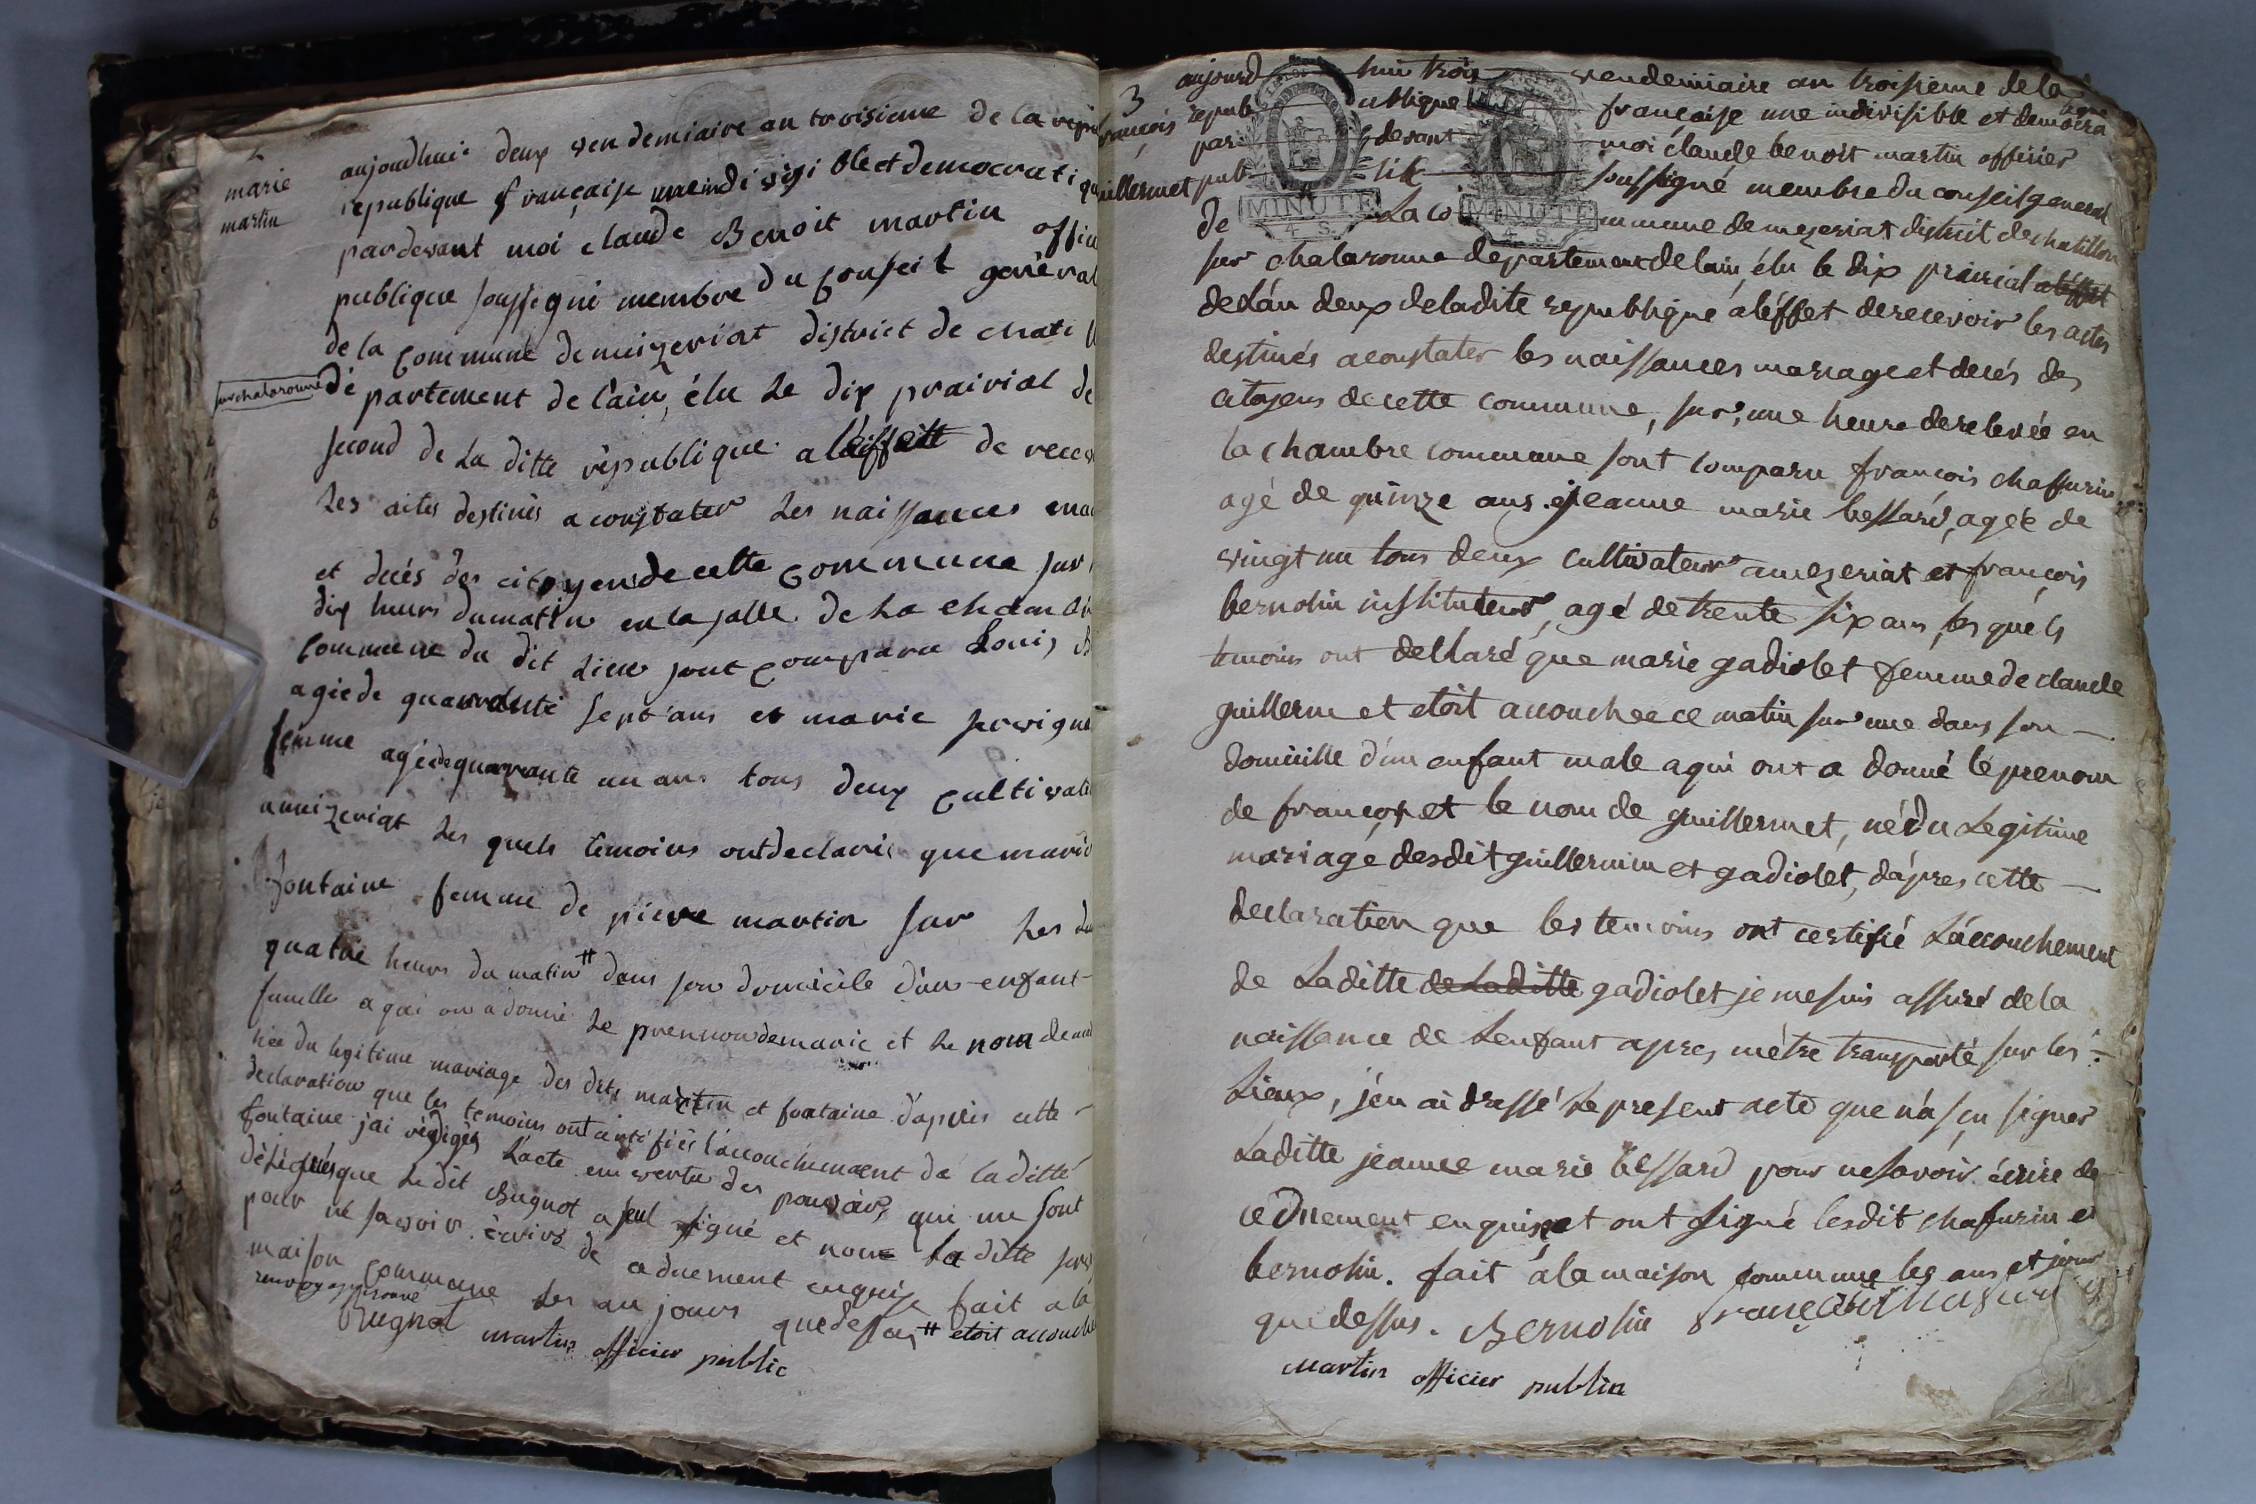 2
marie
martin
aujoudhui deux vendemiaire an troisieme de la repu
republique française une indivisi ble et democratiqu
pardevant moi claude Benoit martin offici
publique soussigné membre du conseil general
de la commune de meizeriat district de chati ll
sur chalaronne
dé partement de l'ain, élu le dix prairial de
second de La ditte république a l'effett de recev
les actes destinés a constater les naissances ma
et décés des citoyens de cette commune sur
dix heurs du matin en la salle de La chambr
commune du dit Lieu sont comparu Louis B
agié de quarante sept ans et marie servigna
femme agée de quarante un ans tous deux cultivate
a meizeriat Les quels temoins ont declaré que marie
fontaine femme de pierre martin sur les
quatre heurs du matin # dans son domicile d'un enfant
famelle a qui on a donné Le prennom de marie et Le nom de ma
née du legitime mariage des dits martin et fontaine d'après cette
declaration que les temoins ont certifiés l'accouchement de laditte
fontaine j'ai rédigés L'acte en vertu des pouvoirs qui me sont
délégués que Le dit Bugnot a seul signé et non la ditte serv
pour ne savoir écrire de ce duement enquise fait a la
maison commune les an jours que dessus # etoit accouchée
renvoy approuvé
Bugnot martin officier public
3
françois
guillermet
aujourd hui trois vendemiaire an troisieme de la
repub ublique française une indivisible et democra
tique
par devant moi claude benoit martin officier
pub lik soussigné membre du conseil general
de La co mmune de mezeriat district de chatillon
sur chalaronne departement de lain, élu le dix prairial a l'effet
de L'an deux de ladite republique a l'éffet de recevoir les actes
destinés a constater les naissances mariage et decés des
citoyens de cette commune, sur une heure de relevée en
la chambre commune sont comparu françois chaffurin
agé de quinze ans jeanne marie bessard, agée de
vingt un tous deux cultivateur a mezeriat et françois
bernolin instituteur, agé de trente six ans, les quels
temoins ont declaré que marie gadiolet femme de claude
guillermet etoit accouchée ce matin sur une dans son
domicille d'un enfant male a qui ont a donné le prenom
de françois et le nom de guillermet, né du Legitime
mariage desdit guillermin et gadiolet, d'après cette
declaration que les temoins ont certifié L'accouchement
de Laditte de Laditte gadiolet je me suis assuré de la
naissance de L'enfant apres m'étre transporté sur les
Lieux, j'en ai dressé Le present acte que n'a sçu signer
Laditte jeanne marie bessard pour ne savoir écrire de
ce duement enquise et ont signé lesdit chafurin et
bernolin. fait a la maison commune les ans et jour
que dessus. Bernolin françois chafurin
Martin officier public
MINUTE
4. S.
MINUTE
4. S.